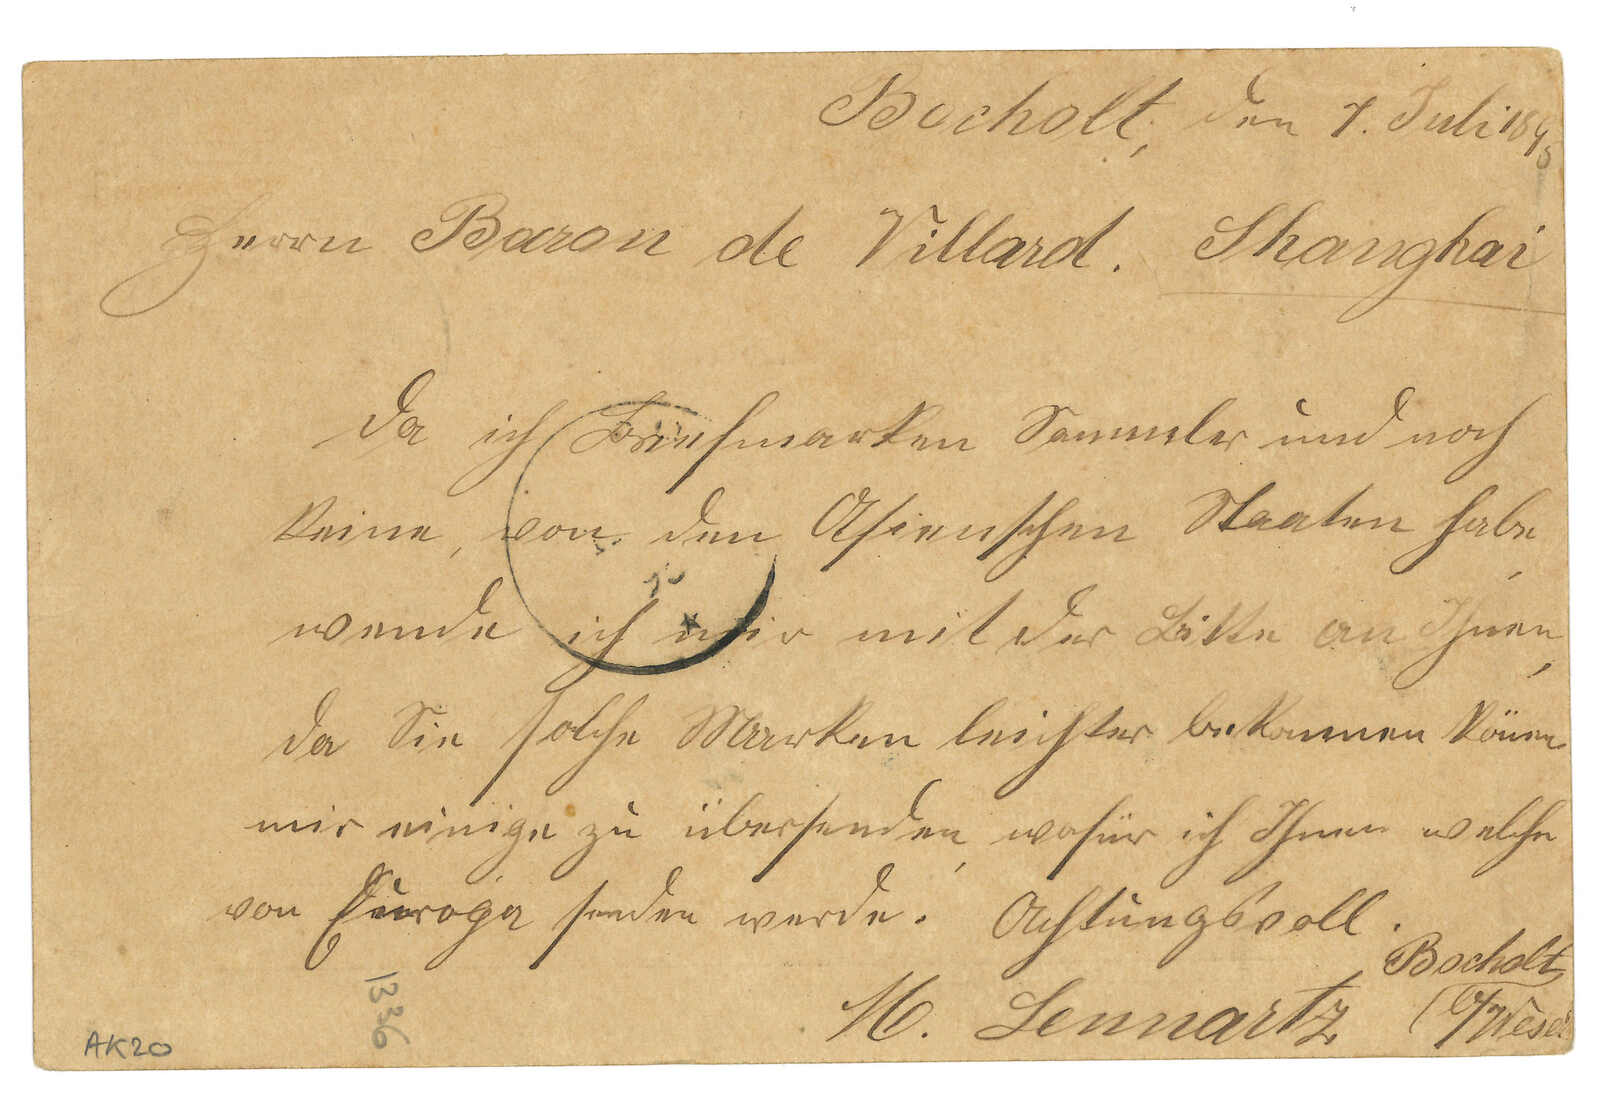 Bocholt, den 7. Juli 1895
Herrn Baron de Villard. Shanghai
Da ich Briefmarken Sammler und noch
keine, von den Asienschen Staaten habe,
wende ich mir mit der Bitte an Ihnen,
da Sie solche Marken leichter bekommen könen
mir einige zu übersenden, wofür ich Ihnen welche
von Europa senden werde. Achtungsvoll.
M. Lennartz Bocholt
(b/Wesel
1336
AK20